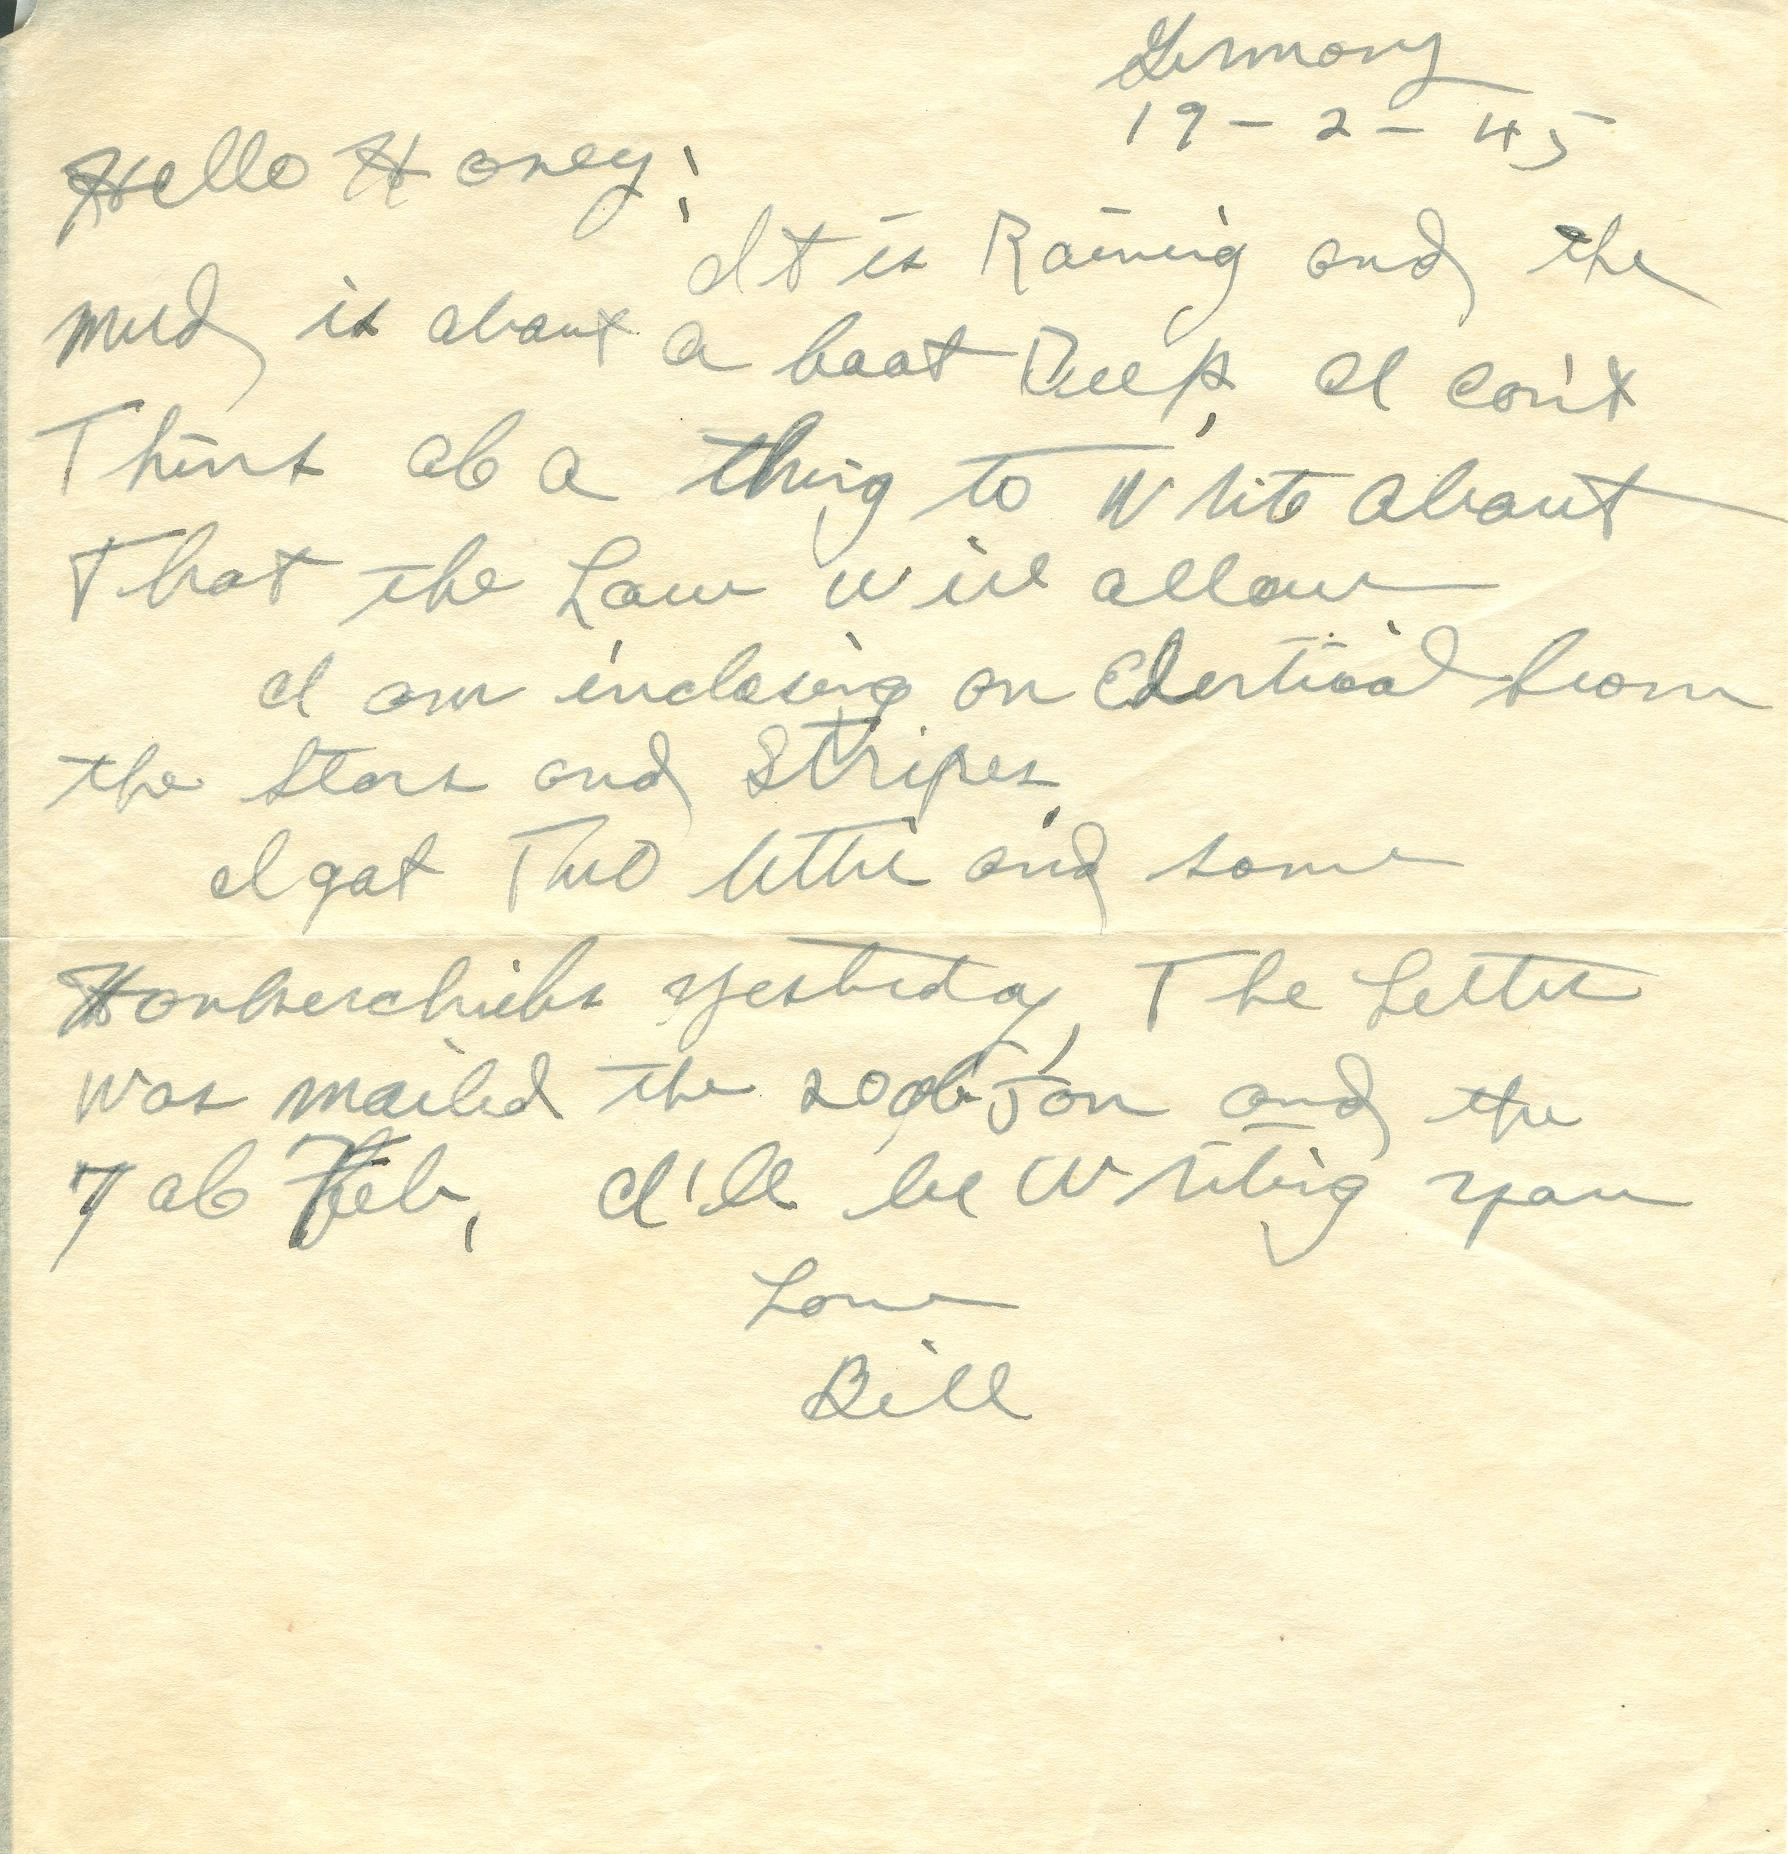 Germany
19-2-45
Hello Honey;
It is Raining and the
mud is about a boat Deep, I can't
Think of a thing to Write about
That the Law will allow
I am inclosing an Edertioal from
the Stars and Stripes,
I got Two letter and some
Hankerchiefs yesterday, The Letter
was mailed the 20 of Jan and the
7 of Feb, I'll be Writing you
Love
Bill